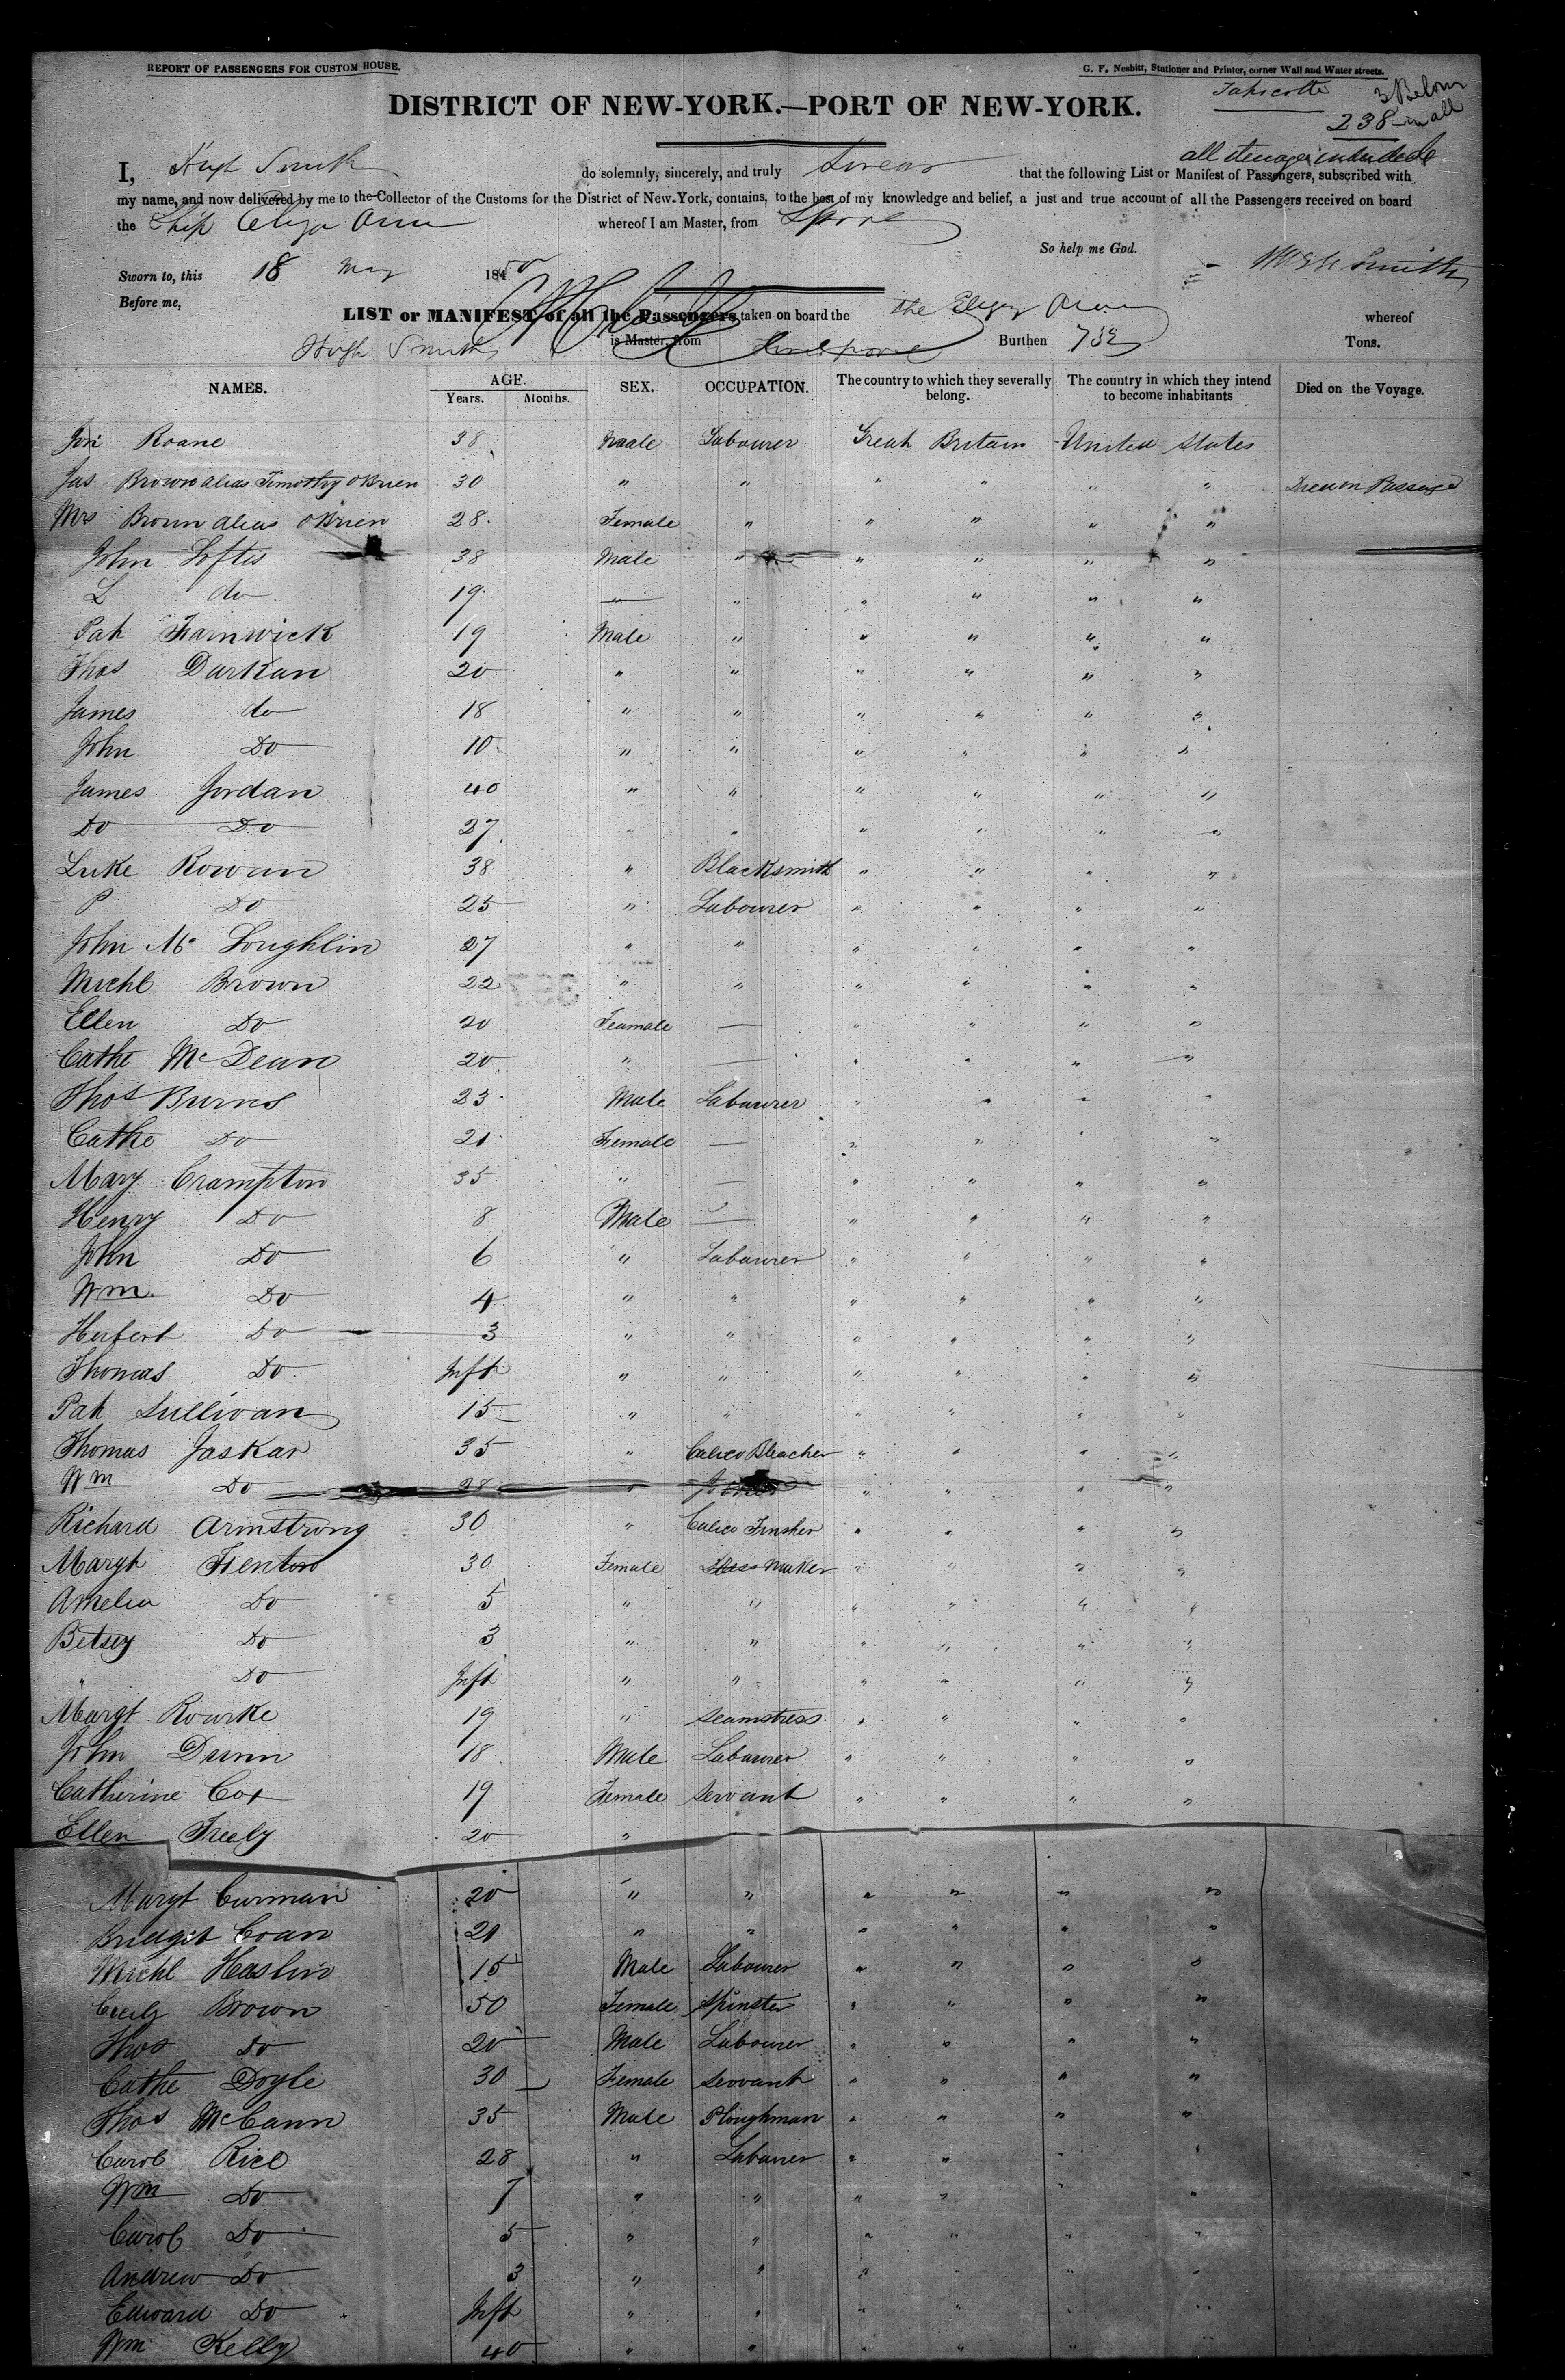 REPORT OF PASSENGERS FOR CUSTOM HOUSE.
G. F. Nesbitt, Stationer and Printer, corner Wall and Water streets.
Tapscotts 3 Below
DISTRICT OF NEW-YORK.—PORT OF NEW-YORK.
238 in all
all steerage
I, Hugh Smith do solemnly, sincerely, and truly Swear that the following List or Manifest of Passengers, subscribed with
my name, and now delivered by me to the Collector of the Customs for the District of New-York, contains, to the best of my knowledge and belief, a just and true account of all the Passengers received on board
the Ship Eliza Ann whereof I am Master, from Lpool
So help me God.
Sworn to, this 18 May 1850 Hugh Smith
Before me,
LIST or MANIFEST of all the Passengers taken on board the the Eliza Ann whereof
Hugh Smith is Master, from Liverpool Burthen 732 Tons.
NAMES. AGE. SEX. OCCUPATION. The country to which they severally belong. The country in which they intend to become inhabitants Died on the Voyage.
Years. Months.
Jon Roane 38 Male Labourer Great Britain United States
Jas Brown alias Timothy OBrien 30 " " " " " " Died on Passage
Mrs Brown alias OBrien 28 Female " " " " "
John Loftis 38 Male " " " " "
L do 19 " " " " " "
Pat Farnwick 19 Male " " " " "
Thos Durkan 20 " " " " " "
James do 18 " " " " " "
John Do 10 " " " " " "
James Jordan 40 " " " " " "
Do Do 27 " " " " " "
Luke Rowan 38 " Blacksmith " " " "
P Do 25 " Labourer " " " "
John Mc Loughlin 27 " " " " " "
Michl Brown 22 " " " " " "
Ellen Do 20 Feamale — " " " "
Cathe McDean 20 " — " " " "
Thos Burns 23 Male Labourer " " " "
Cathe Do 21 Female — " " " "
Mary Crampton 35 " — " " " "
Henry Do 8 Male — " " " "
John Do 6 " Labourer " " " "
Wm. Do 4 " " " " " "
Herbert Do 3 " " " " " "
Thomas Do Inft " " " " " "
Pat Sullivan 15 " " " " " "
Thomas Jaskar 35 " Calico Bleacher " " " "
Wm Do 28 " " " " "
Richard Armstrong 30 " Calico Finsher " " " "
Margt Fenton 30 Female Dress Maker " " " "
Amelia Do 5 " " " " " "
Betsey Do 3 " " " " " "
" Do Inft " " " " " "
Margt Rourke 19 " Seamstress " " " "
John Dunn 18 Male Labourer " " " "
Catherine Cox 19 Female Servant " " " "
Ellen Freely 20 "
Margt Curman 20 " " " " " "
Bridget Coan 21 " " " " " "
Michl Heslin 15 Male Labourer " " " "
Cecily Brown 50 Female Spinster " " " "
Thos Do 20 Male Labourer " " " "
Cathe Doyle 30 Female Servant " " " "
Thos McCann 35 Male Ploughman " " " "
Carol Rice 28 " Labourer " " " "
Wm Do 7 " " " " "
Carol Do 5 " " " " " "
Andrew Do 3 " " " " "
Edward Do Inft " " " " " "
Wm Kelly 40 " " " " " "